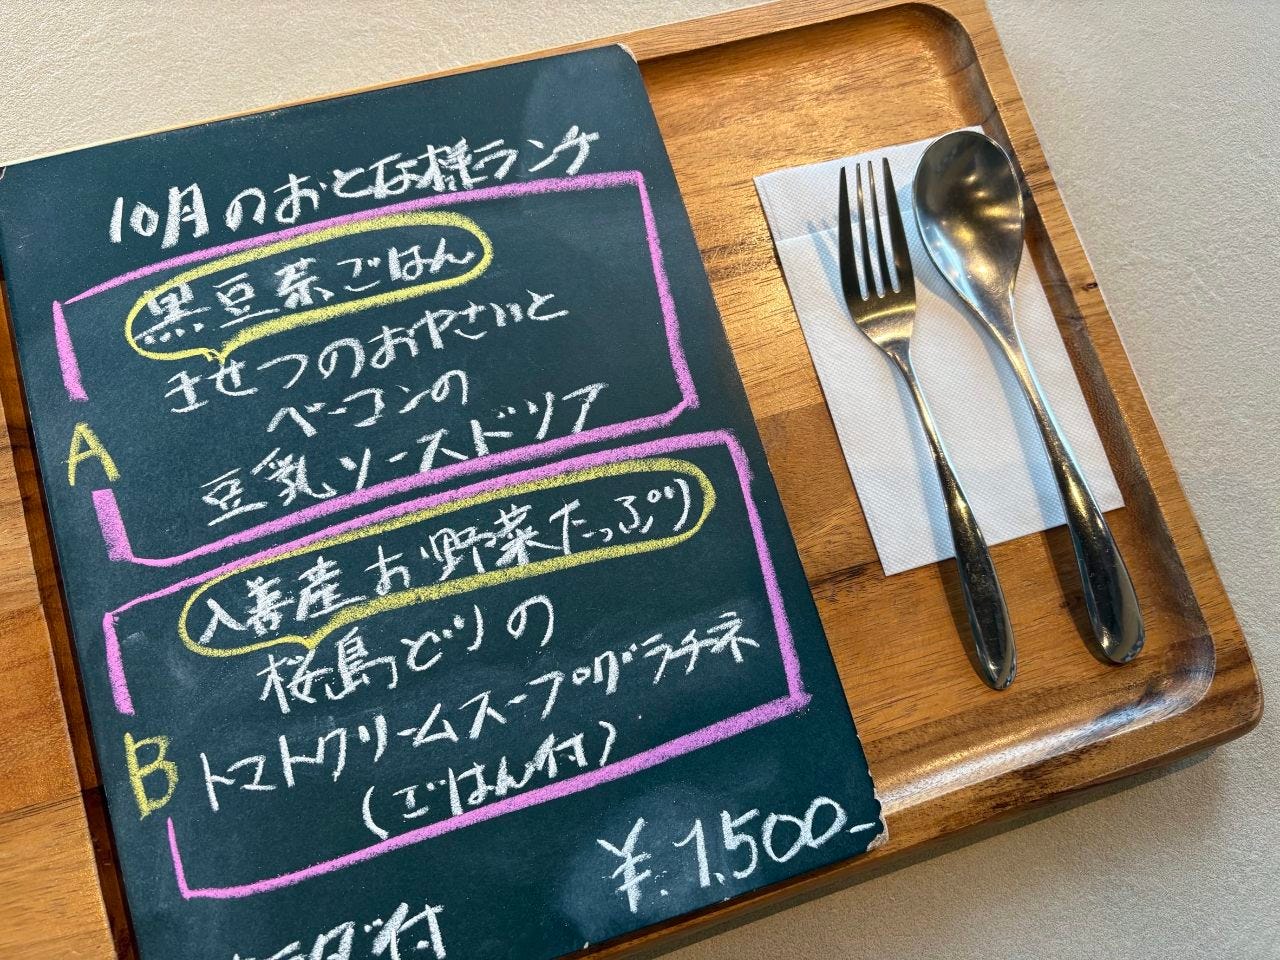 10月のおとな様ランチ
A
黒豆茶ごはん
きせつのおやさいと
ベーコンの
豆乳ソースドリア
B
入善産お野菜たっぷり
桜島どりの
トマトクリームスープのグラチネ
(ごはん付)
¥.1,500-
サラダ付